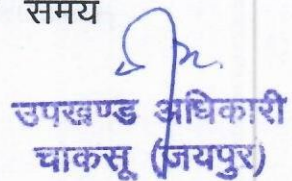 समय
उपखण्ड अधिकारी
चाकसू (जयपुर)